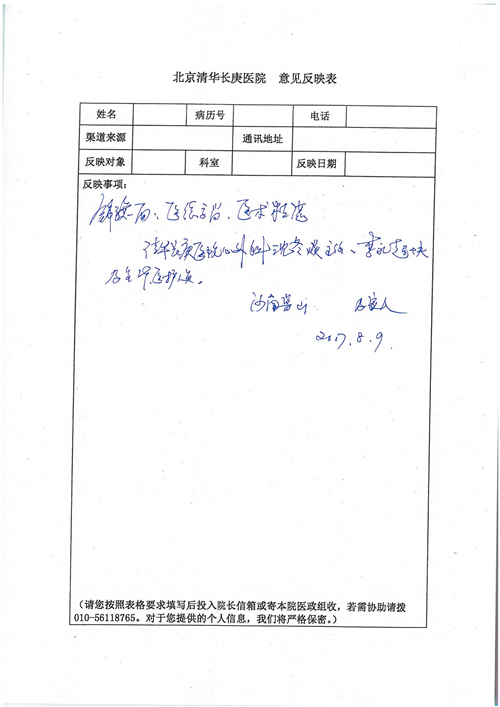 北京清华长庚医院 意见反映表
姓名 病历号 电话
渠道来源 通讯地址
反映对象 科室 反映日期
反映事项:
锦旗一面、医德高尚、医术精湛
清华长庚医院心外科沈冬焱主任、李
及全体医护人员。
及家人
2017.8.9
(请您按照表格要求填写后投入院长信箱或寄本院医政组收，若需协助请拨
010-56118765。对于您提供的个人信息，我们将严格保密。)